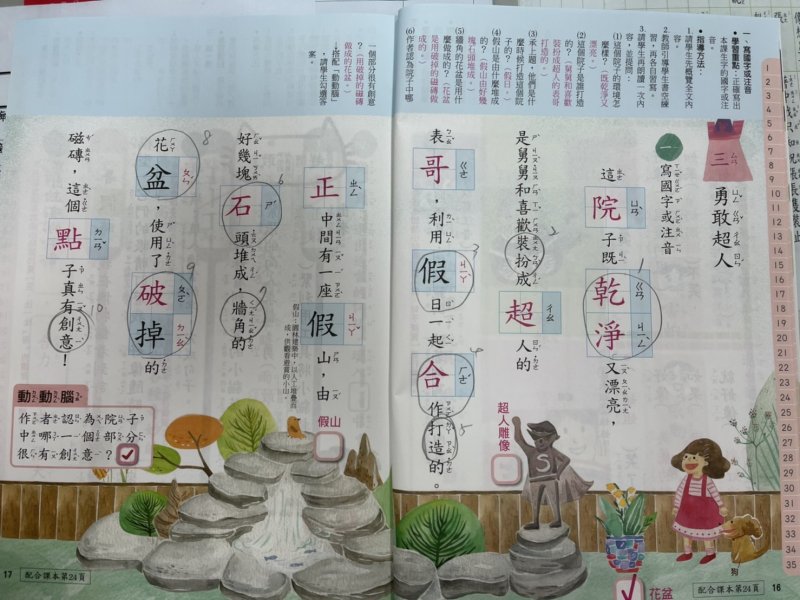 一、寫國字或注音
●學習重點：正確寫出本課生字的國字或注音。
●指導方法：
1.請學生先概覽全文內容。
2.教師引導學生書空練習，再各自習寫。
3.請學生再朗讀一次內容，並提問：
(1)這個院子的環境怎麼樣？（既乾淨又漂亮。）
(2)這個院子是誰打造的？（舅舅和喜歡裝扮成超人的表哥打造的。）
(3)承上題，他們是什麼時候打造這個院子的？（假日。）
(4)假山是由什麼堆成的？（假山由好幾塊石頭堆成。）
(5)牆角的花盆是用什麼做成的？（花盆是用破掉的磁磚做成的。）
(6)作者認為院子中哪
一個部分很有創意？（用破掉的磁磚做成的花盆。）
→搭配「動動腦」，請學生勾選答案。
三 勇敢超人
一 寫國字或注音
這院子既乾淨又漂亮，
是舅舅和喜歡裝扮成超人的
表哥，利用假日一起合作打造的。
正中間有一座假山，由
假山：園林建築中，以人工堆疊而成，供觀看遊賞的小山。
好幾塊石頭堆成，牆角的
花盆，使用了破掉的
磁磚，這個點子真有創意！
1
2
3
4
5
6
7
8
9
10
動動腦
作者認為院子
中哪一個部分
很有創意？
假山
超人雕像
花盆
狗
S
17 配合課本第24頁
配合課本第24頁 16
1
2
3
4
5
6
7
8
9
10
11
12
13
14
15
16
17
18
19
20
21
22
23
24
25
26
27
28
29
30
31
32
33
34
35